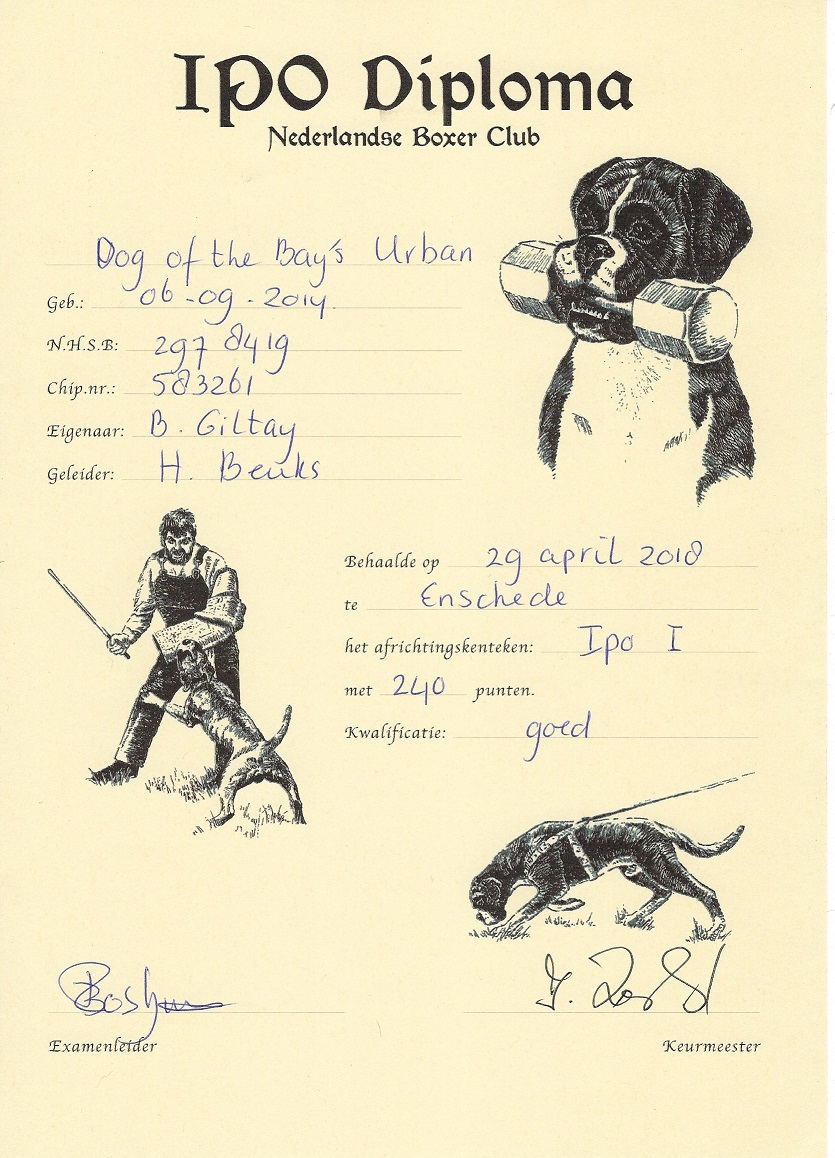 IPO Diploma
Nederlandse Boxer Club
Dog of the Bay's Urban
Geb.: 06-09-2014
N.H.S.B: 297 8419
Chip.nr.: 583261
Eigenaar: B. Giltay
Geleider: H. Beuks
Behaalde op 29 april 2018
te Enschede
het africhtingskenteken: Ipo I
met 240 punten.
Kwalificatie: goed
Examenleider
Keurmeester